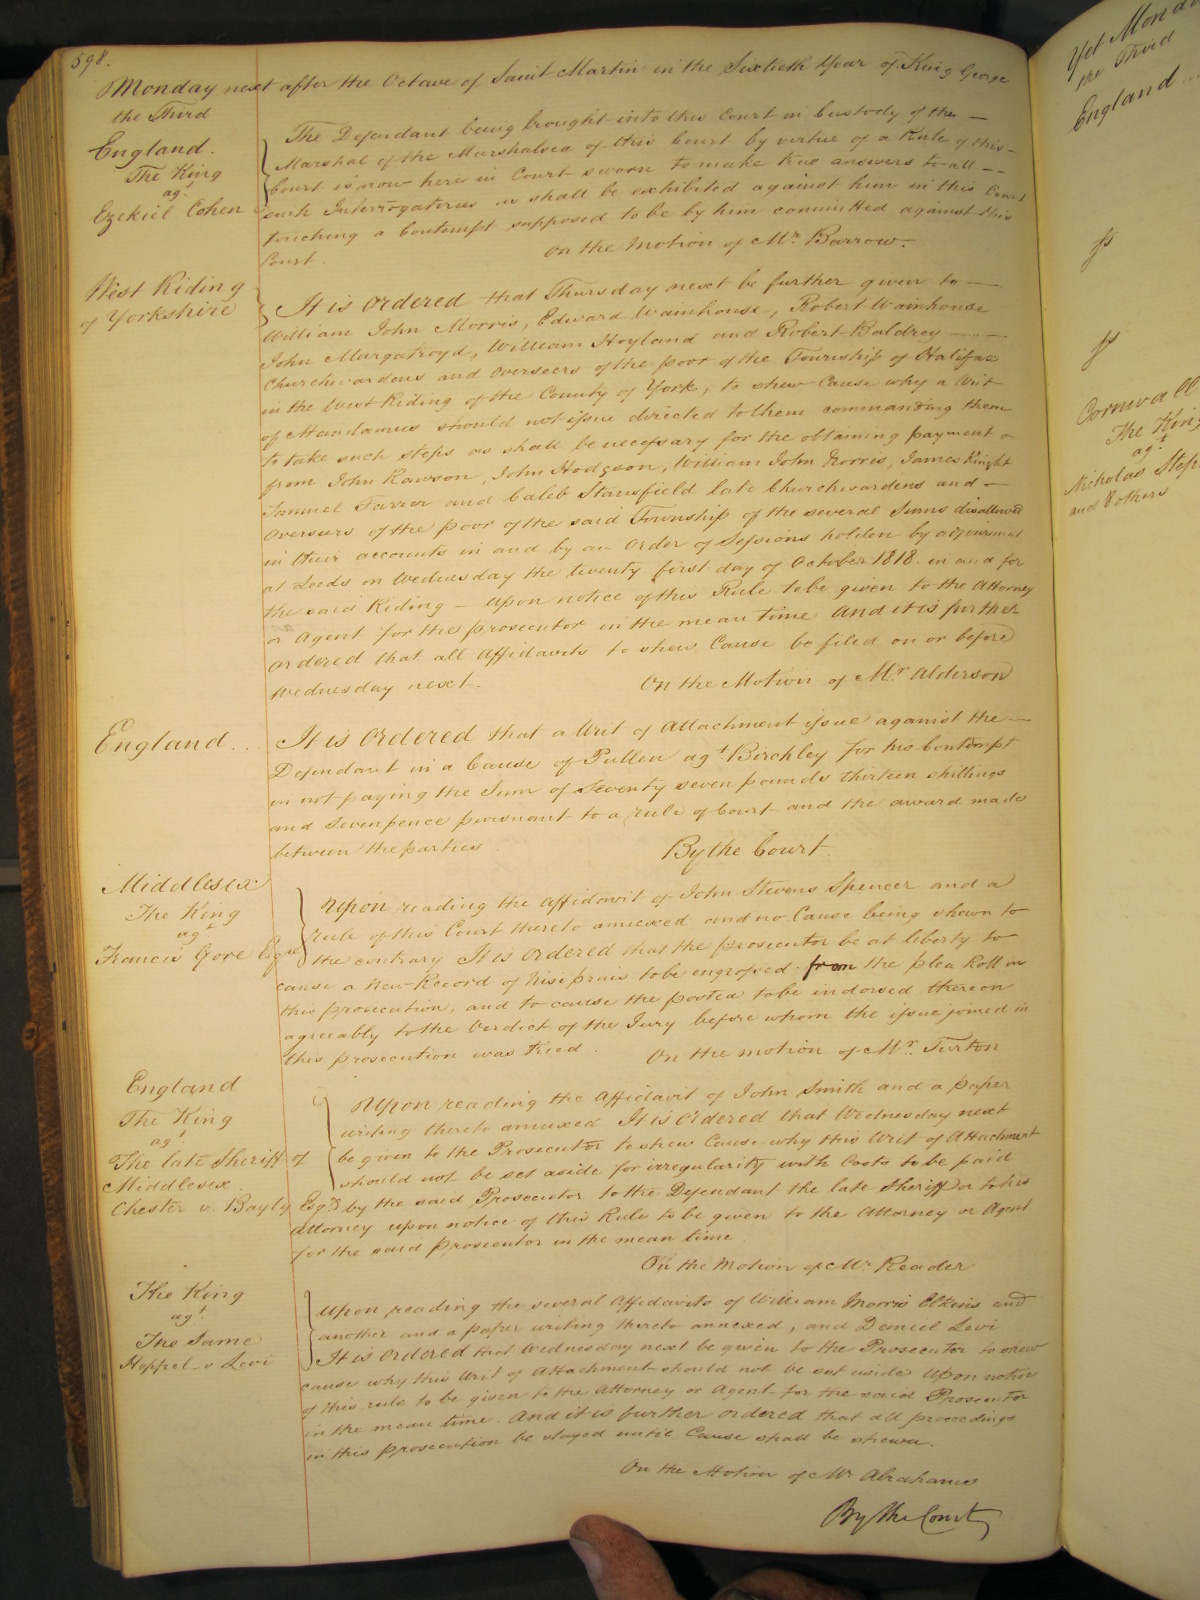 598.
Monday next after the Octave of Saint Martin in the Sixtieth Year of King George
the Third
England.
The King
agt
Ezekiel Cohen
The Defendant being brought into this Court in Custody of the —
Marshal of the Marshalsea of this Court by virtue of a Rule of this –
Court is now here in Court sworn to make true answers to all – –
such Interrogatories as shall be exhibited against him in this Court
touching a Contempt supposed to be by him committed against this
Court.
On the Motion of Mr. Barrow.
West Riding
of Yorkshire
It is Ordered that Thursday next be further given to —
William John Morris, Edward Wainhouse, Robert Wainhouse
John Murgatroyd, William Hoyland and Robert Baldrey — —
Churchwardens and Overseers of the poor of the Township of Halifax
in the West Riding of the County of York, to shew Cause why a Writ
of Mandamus should not issue directed to them commanding them
to take such steps as shall be necessary for the obtaining payment
from John Rawson, John Hodgson, William John Norris, James Knight
Samuel Farrer and Caleb Stansfield late Churchwardens and —
Overseers of the poor of the said Township of the several Sums disallowed
in their accounts in and by an Order of Sessions holden by adjournment
at Leeds on Wednesday the twenty first day of October 1818. in and for
the said Riding – upon notice of this Rule to be given to the Attorney
or Agent for the prosecutor in the mean time And it is further
ordered that all Affidavits to shew Cause be filed on or before
Wednesday next.
On the Motion of Mr Alderson
England...
It is Ordered that a Writ of Attachment issue against the —
Defendant in a Cause of Pullen agt Birchley for his Contempt
in not paying the Sum of Seventy seven pounds thirteen shillings
and Sevenpence pursuant to a rule of Court and the award made
between the parties.
By the Court.
Middlesex
The King
agt
Francis Gore Esqre
Upon reading the Affidavit of John Stevens Spencer and a
rule of this Court thereto annexed and no Cause being shewn to
the contrary It is Ordered that the prosecutor be at liberty to
cause a New Record of Nisi prius to be engrossed from the plea Roll in
this prosecution, and to cause the postea to be indorsed thereon
agreeably to the Verdict of the Jury before whom the issue joined in
this prosecution was tried.
On the motion of Mr. Turton
England
The King
agt
The late Sheriff of
Middlesex.
Chester v. Bayly Esqr.
Upon reading the Affidavit of John Smith and a paper
writing thereto annexed It is Ordered that Wednesday next
be given to the Prosecutor to shew Cause why this Writ of Attachment
should not be set aside for irregularity with Costs to be paid
by the said Prosecutor to the Defendant the late Sheriff or to his
Attorney upon notice of this Rule to be given to the Attorney or Agent
for the said prosecutor in the mean time.
On the Motion of Mr Reader
The King
agt
The Same
Heppel v Levi
Upon reading the several Affidavits of William Morris Elkins and
another and a paper writing thereto annexed, and Daniel Levi
It is Ordered that Wednesday next be given to the Prosecutor to shew
cause why this Writ of Attachment should not be set aside Upon notice
of this rule to be given to the Attorney or Agent for the said Prosecutor
in the mean time. And it is further ordered that all proceedings
in this prosecution be stayed until Cause shall be shewn.
On the Motion of Mr Abrahams
By the Court
Yet Mon
the Third
England...
Cornwall
The King
agt
Nicholas Step
and 8 others